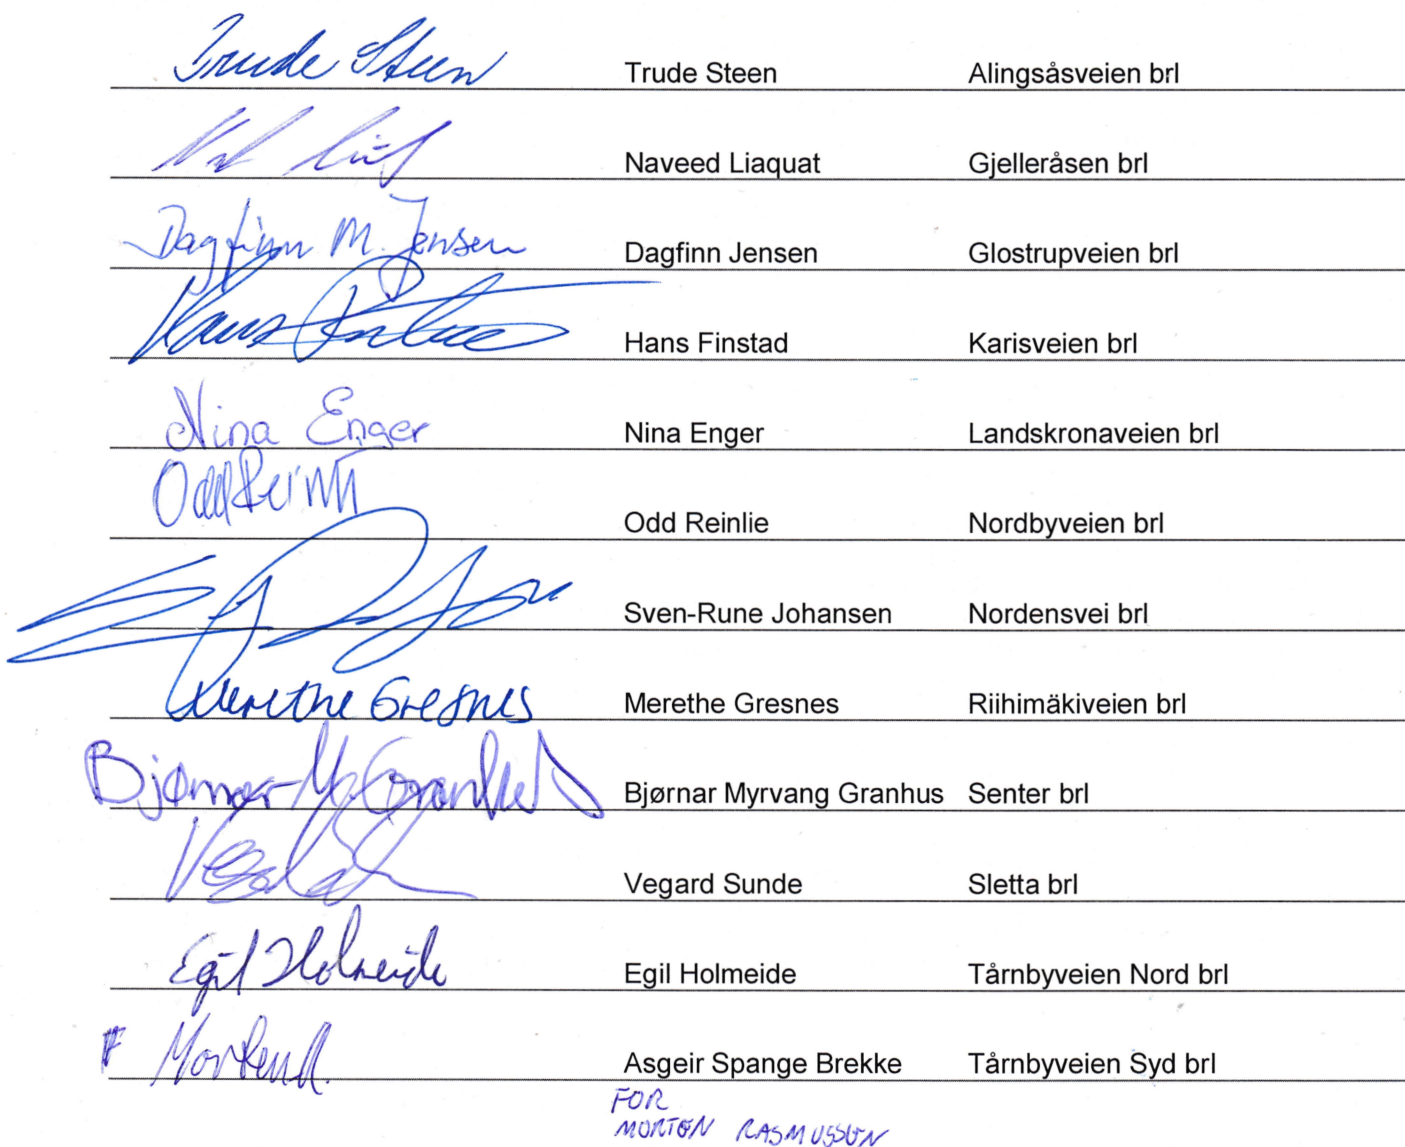 Trude Steen Trude Steen Alingsåsveien brl
Naveed Liaquat Gjelleråsen brl
Dagfinn M. Jensen Dagfinn Jensen Glostrupveien brl
Hans Finstad Karisveien brl
Nina Enger Nina Enger Landskronaveien brl
Odd Reinlie Nordbyveien brl
Sven-Rune Johansen Nordensvei brl
Merethe Gresnes Merethe Gresnes Riihimäkiveien brl
Bjørnar M. Granhus Bjørnar Myrvang Granhus Senter brl
Vegard Sunde Sletta brl
Egil Holmeide Egil Holmeide Tårnbyveien Nord brl
Morten R. Asgeir Spange Brekke Tårnbyveien Syd brl
FOR
MORTEN RASMUSSEN